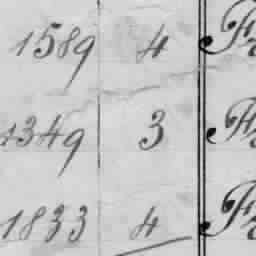 1589 4
1349 3
1833 4